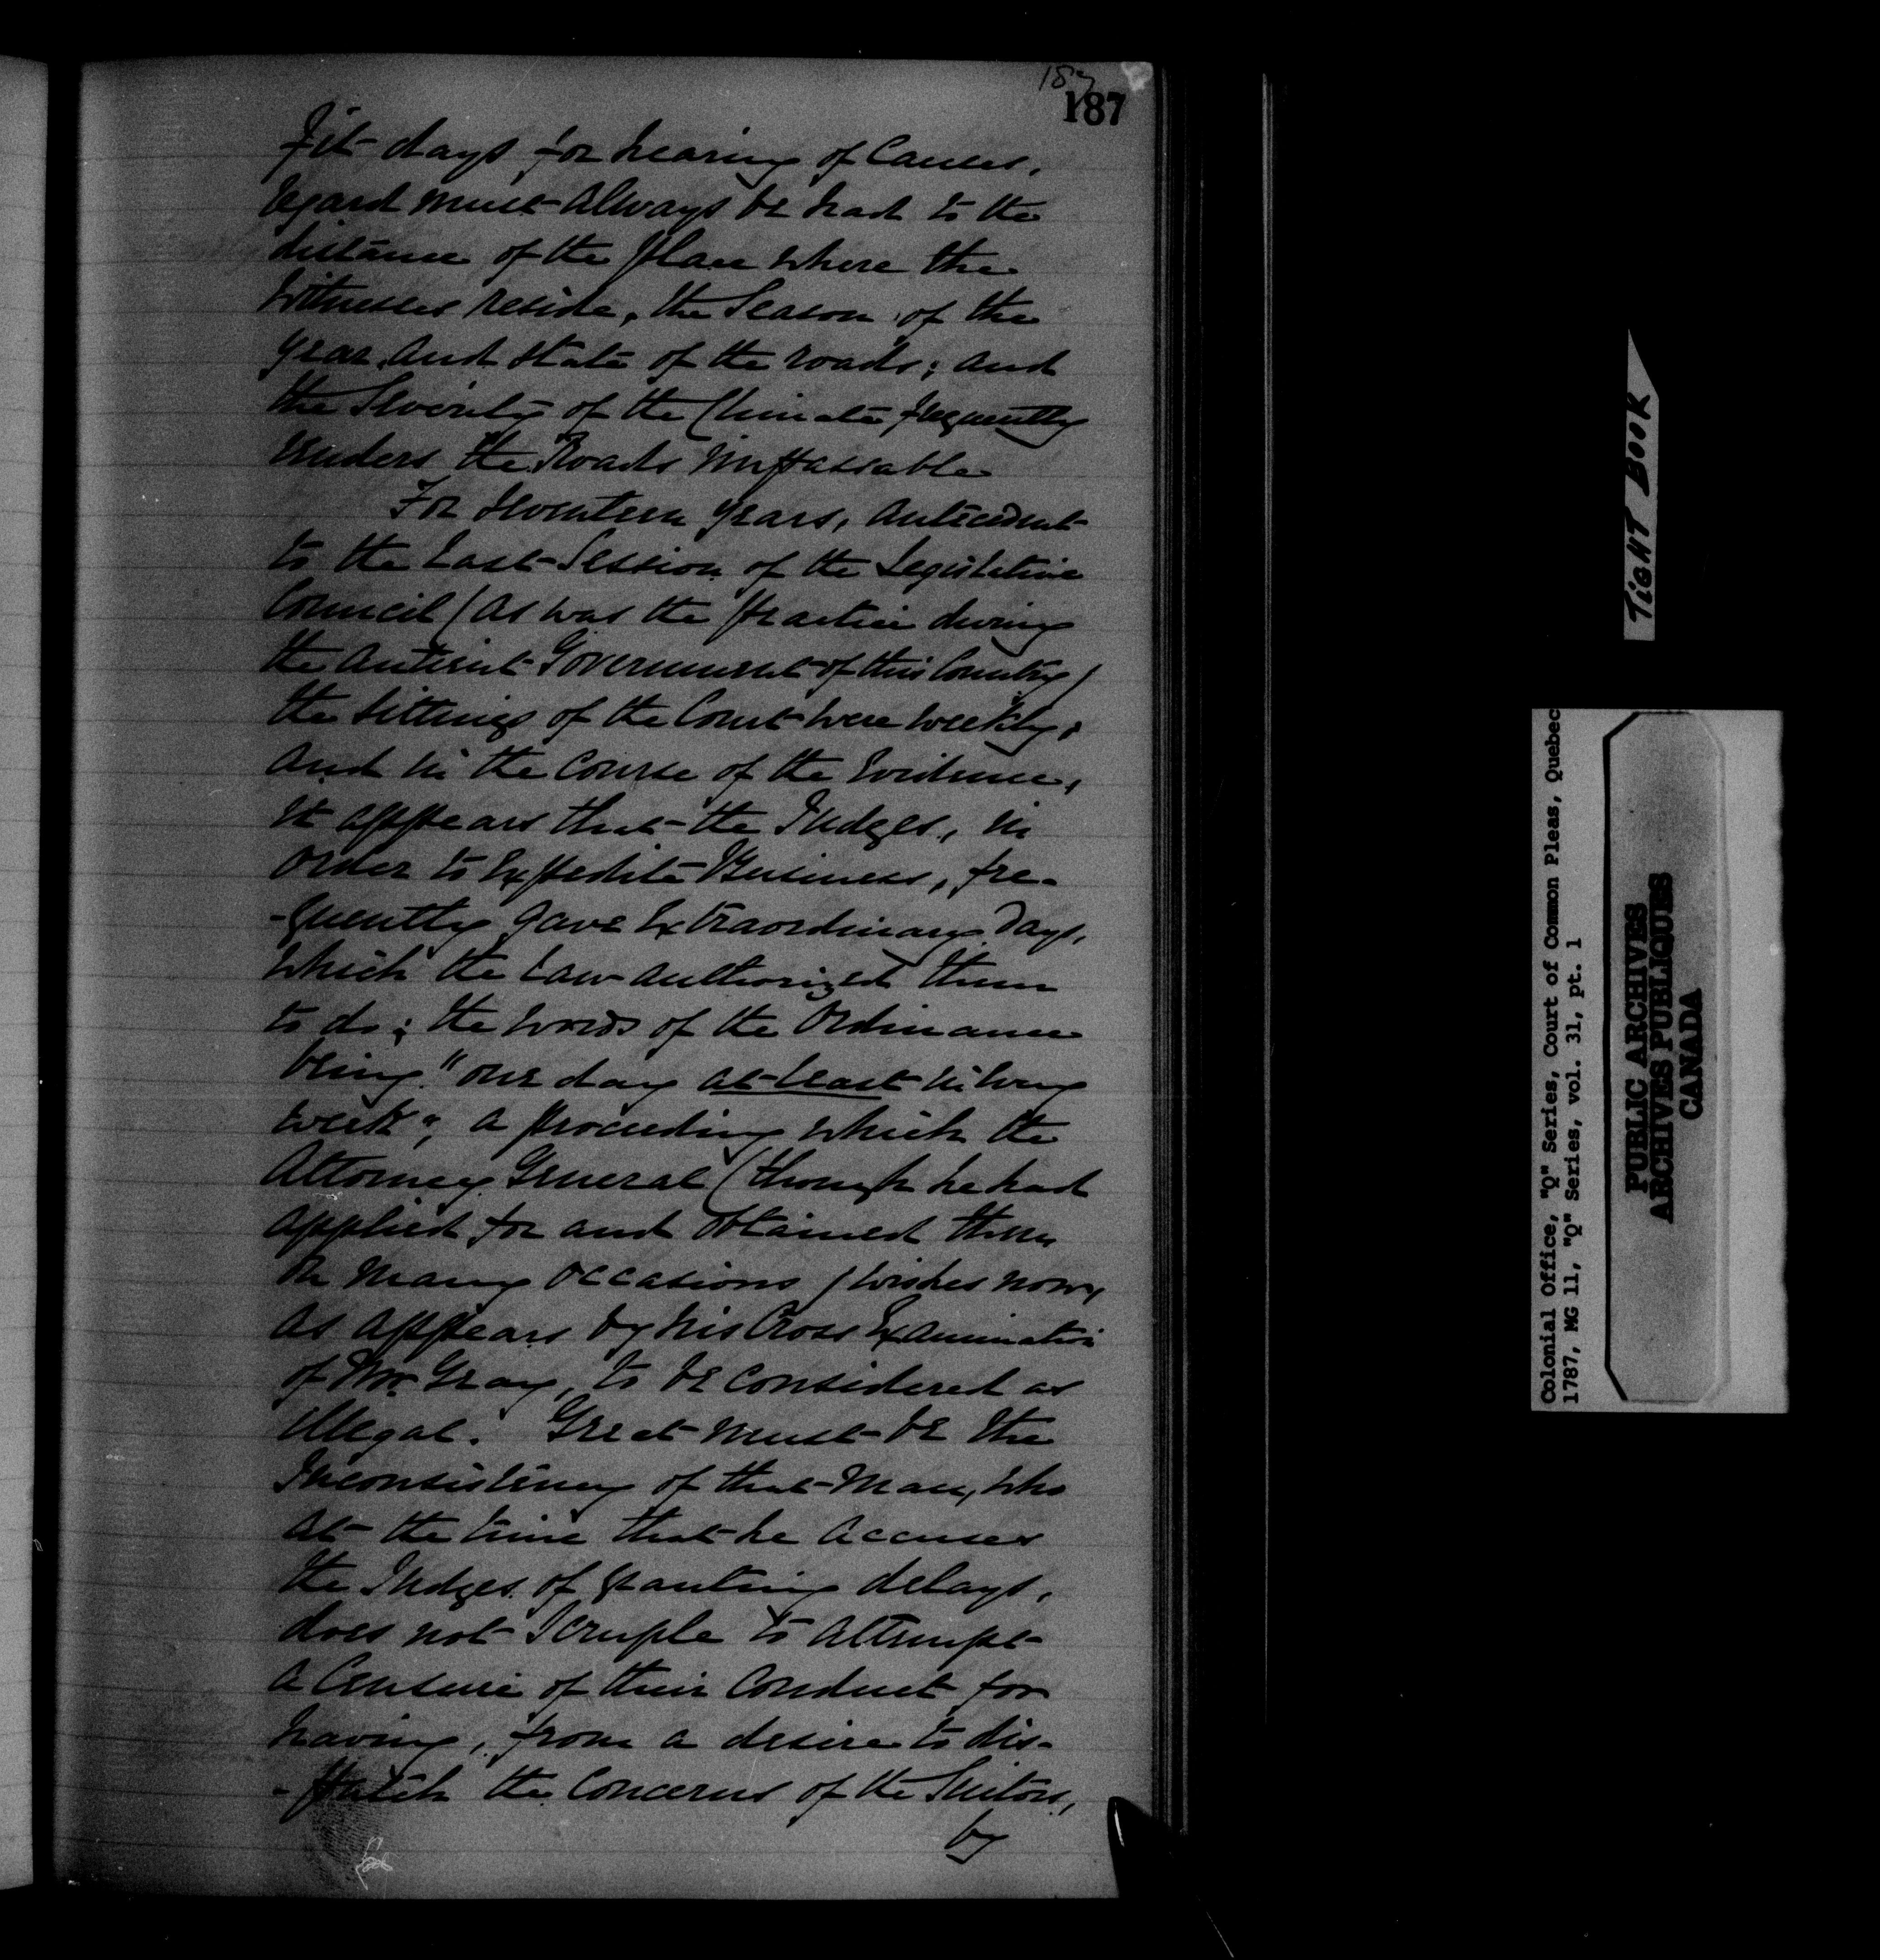 187
187
fit days for hearing of Causes,
regard must always be had to the
distance of the place where the
Witnesses reside, the Season of the
year, and state of the roads; and
the Severity of the Climate frequently
renders the Roads impassable
For seventeen years, antecedent
to the last Session of the Legislative
Council (as was the practice during
the Antient Government of this Country)
the sittings of the Court were weekly;
and in the course of the Evidence,
it appears that the Judges, in
order to Expedite Business, fre-
-quently gave Extraordinary Days,
which the Law authorized them
to do; the words of the Ordinance
being "one day at least in every
week"; a proceeding which the
Attorney General (though he had
applied for and obtained them
on many occasions) wishes now,
as appears by his Cross Examination
of Mr. Gray, to be considered as
illegal. Great must be the
Inconsistency of that Man, who
at the time that he accuses
the Judges of granting delays,
does not Scruple to attempt
a Censure of their Conduct for
having, from a desire to dis-
-patch the Concerns of the Suitors,
by
TIGHT BOOK
Colonial Office, "Q" Series, Court of Common Pleas, Quebec
1787, MG 11, "Q" Series, vol. 31, pt. 1
PUBLIC ARCHIVES
ARCHIVES PUBLIQUES
CANADA